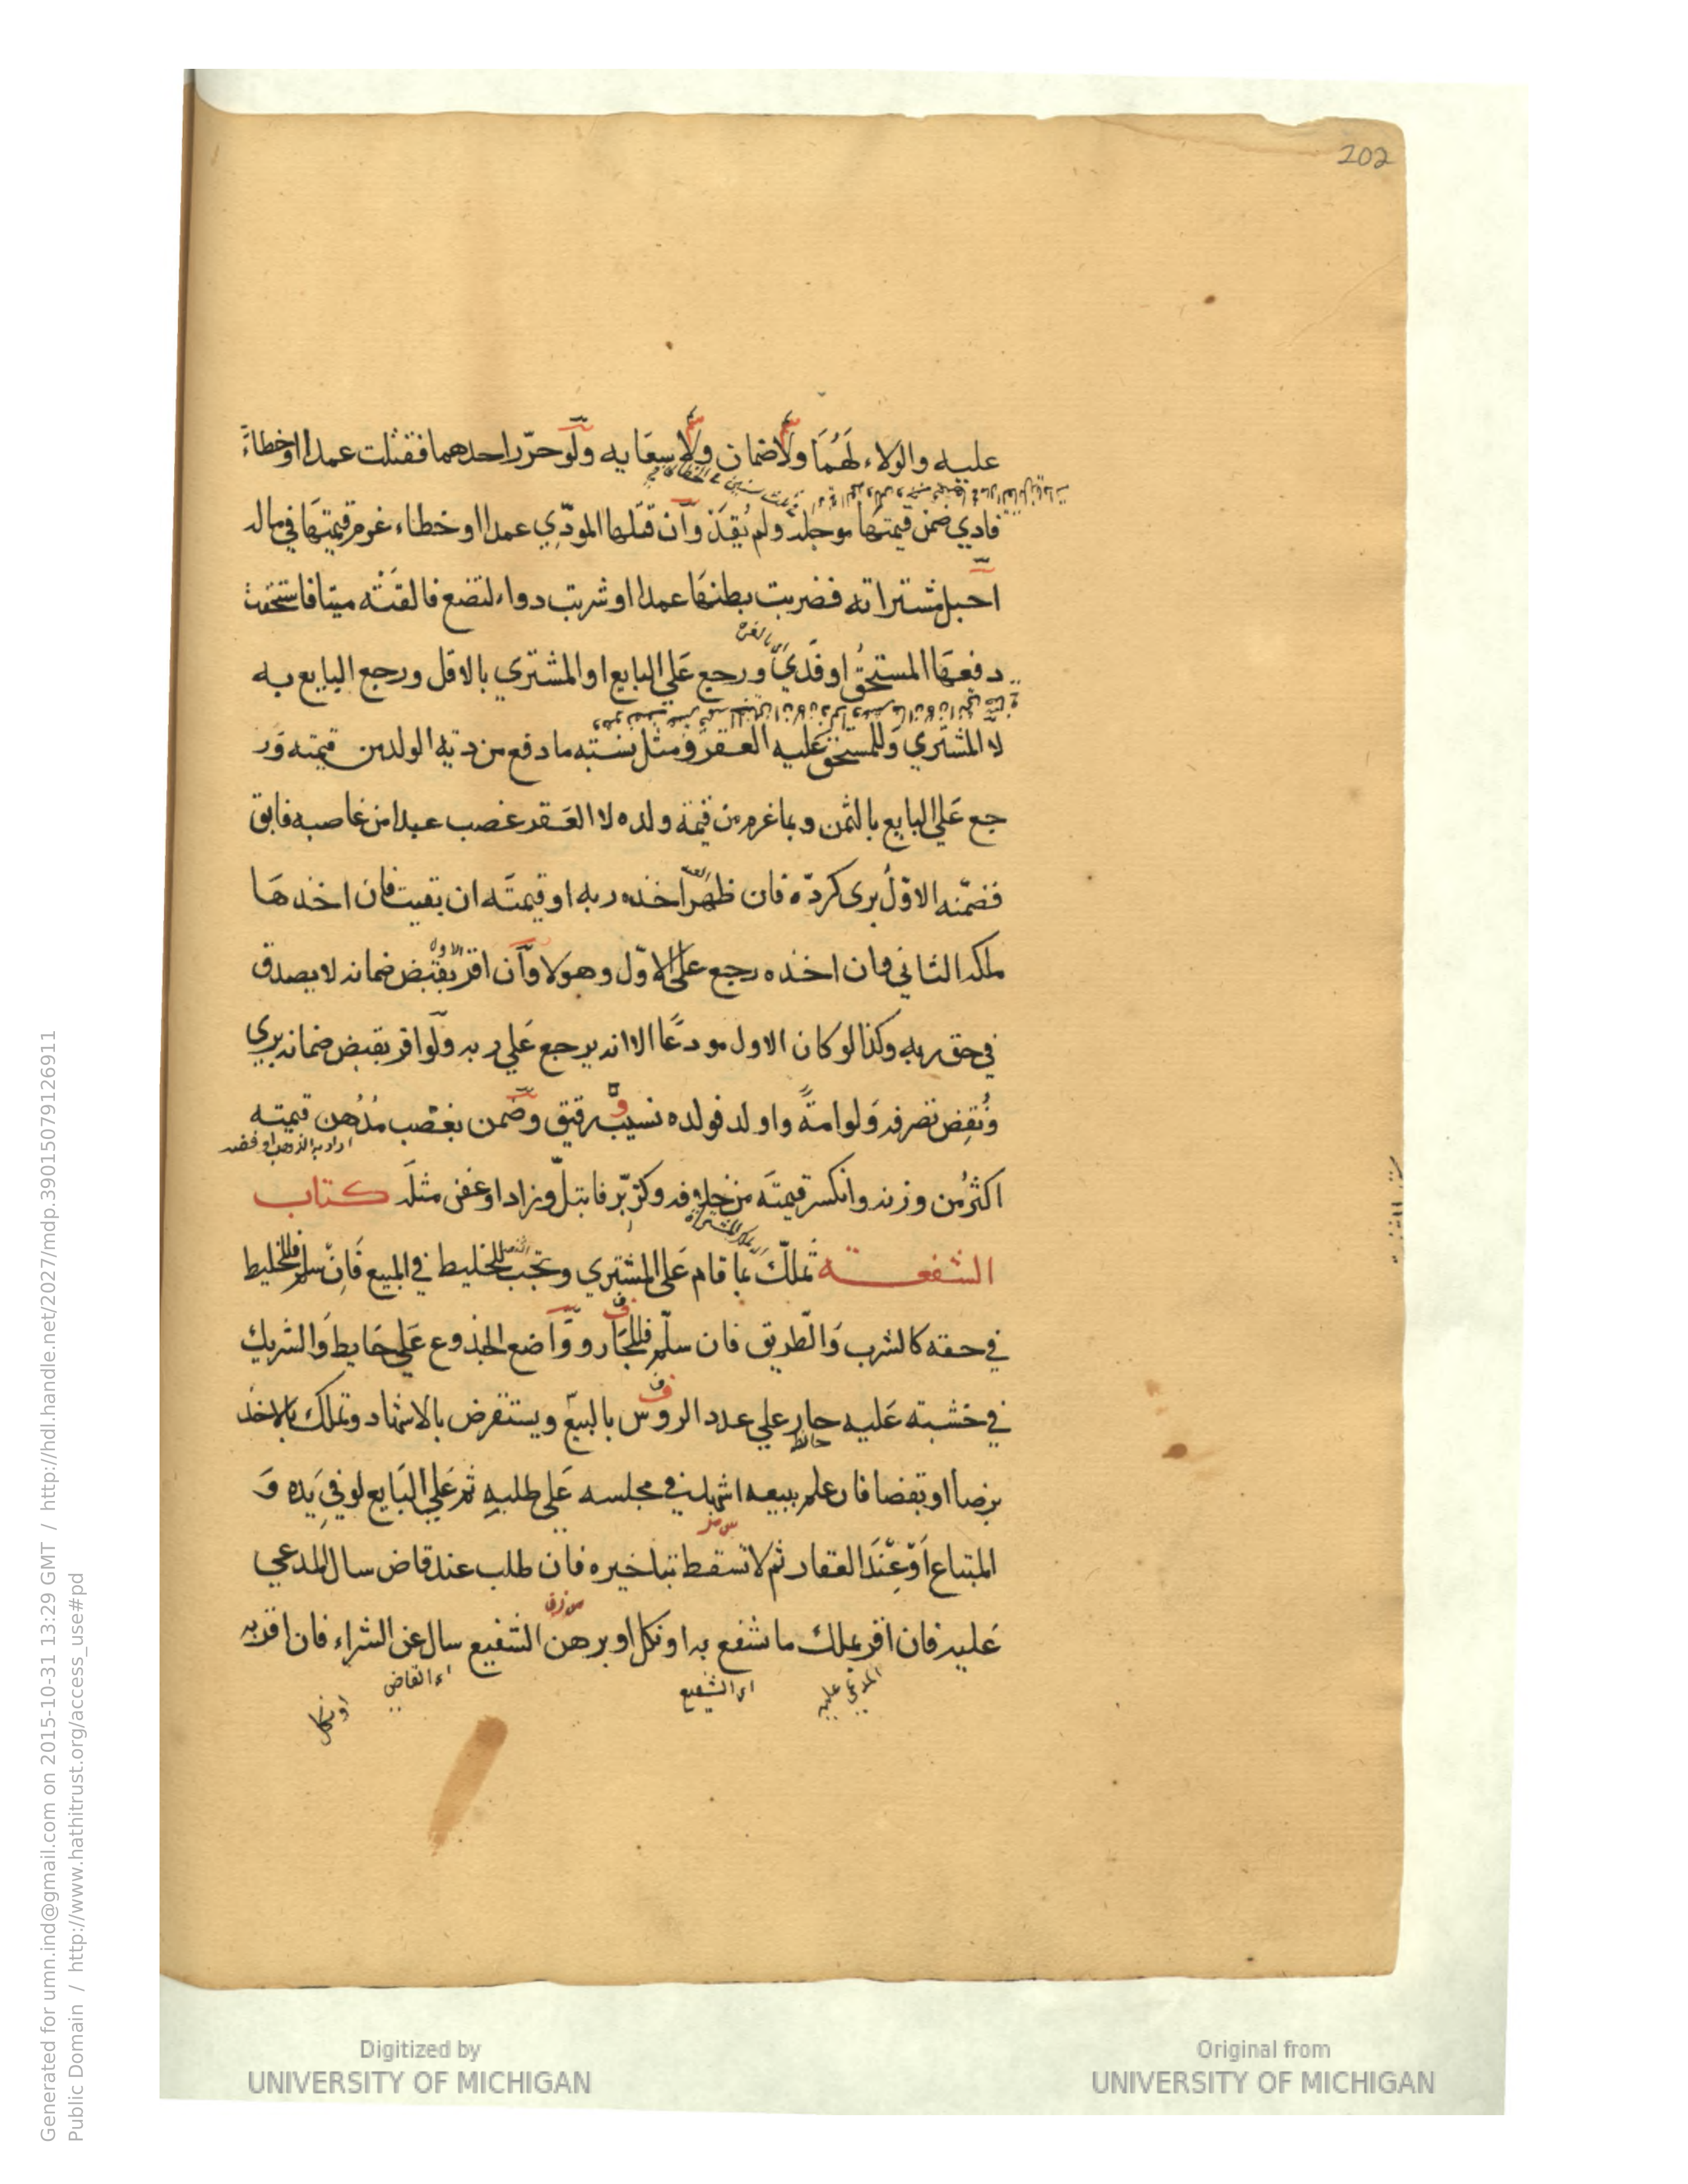 202
عليه والولاء لهما ولا ضمان ولا سعايه ولو حرّر احدهما فقتلت عمدا او خطاء
فادي ضمن قيمتها موجله ولم يُقِدْ وان قتلها المودّي عمدا او خطاء غرم قيمتها في ماله
احبل مشتراته فضربت بطنها عمدا او شربت دواء لتضع فالقته ميتا فاستحقت
دفعها المستحق او فدي ورجع علي البايع او المشتري بالاقل ورجع البايع به
لا المشتري وللمستحق عليه العقر ومثل نسبته ما دفع من دية الولد من قيمته ور
جع علي البايع بالثمن وبما غرم من قيمة ولده لا العقر غصب عبدا من غاصبه فابق
فضمنه الاوّل برى كردّه فان ظهر اخذه ربه او قيمته ان بقيت فان اخذها
ملكه الثاني وان اخذه رجع علي الاوّل وهو لا وان اقر بقبض ضمانه لا يصدق
في حق ربه وكذا لو كان الاول مودعا الا انه يرجع علي ربه ولو اقر بقبض ضمانه بري
ونقض تصرفه ولو امة واولد فولده نسيب رقيق وضمن بغصب مُدْهن قيمته
اكثر من وزنه وانكسر قيمته من خلافه وكرّ برّ فابتلّ وزاد او عفن مثله كتاب
الشفعة تملّك بما قام علي المشتري وتجب للخليط في المبيع فان سلم فللخليط
في حقه كالشرب والطريق فان سلّم فللجار وواضع الجذوع علي حايط والشريك
في خشبته عليه جار علي عدد الروس بالبيع ويستقرض بالاشهاد وتملك بالاخذ
حائط
برضا او بقضا فان علم ببيعه اشهد في مجلسه علي طلبه ثم علي البايع لو في يده و
المبتاع او عند العقار ثم لا تسقط بتاخيره فان طلب عند قاض سال المدعي
عليه فان اقر بملك ما شفع به او نكل او برهن الشفيع سال عن الشراء فان اقر به
المدعي عليه
اي الشفيع
اي القاضي
او نكل
Digitized by
UNIVERSITY OF MICHIGAN
Original from
UNIVERSITY OF MICHIGAN
Generated for umn.ind@gmail.com on 2015-10-31 13:29 GMT / http://hdl.handle.net/2027/mdp.39015079126911
Public Domain / http://www.hathitrust.org/access_use#pd